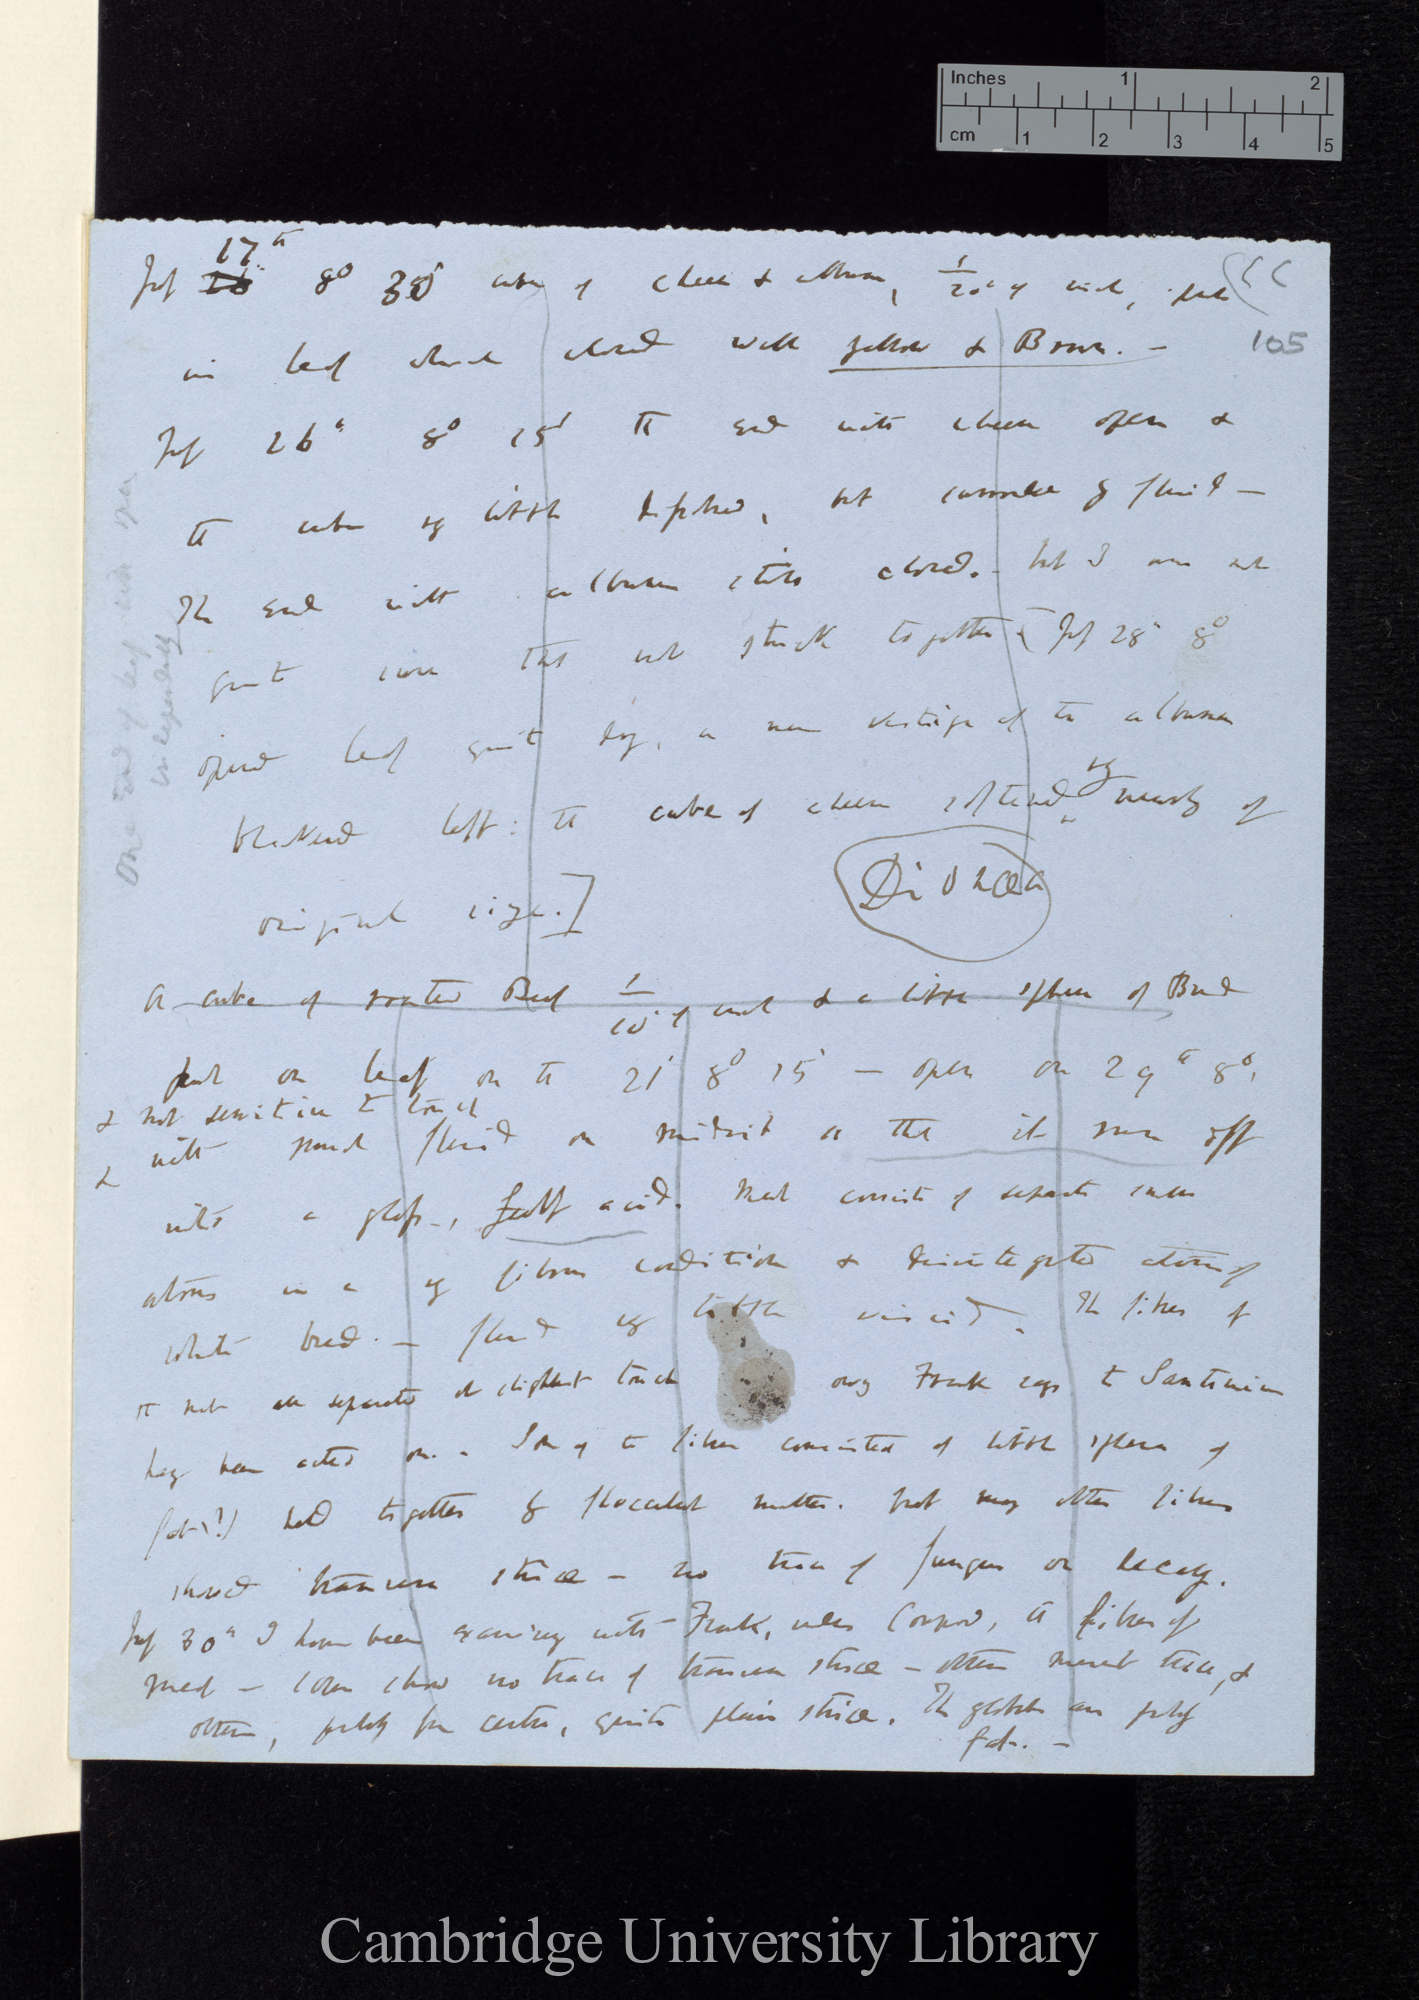 Inches 1 2
cm 1 2 3 4 5
17th
8° 30' cubes of cheese & albumen, 1/20 of inch, put
105
in leaf which closed well yellow & Brown. —
26th 8° 15' the end with cheese open &
the cube very little softened, but surrounded by fluid —
The end with albumen still closed. — but I am not
quite sure that not stuck together [28th 8°
opened leaf quite dry, a mere vestige of the albumen
blackened left: the cube of cheese softened very nearly of
original size.]
Dionæa
One end of leaf will open
independently
A cube of roasted Beef 1/10 of inch & a little sphere of Bread
put on leaf on the 21' 8° 15' — open on 29th 8°,
& not sensitive to touch
& with much fluid on midrib so that it runs off
into a glass, acid. Meat consists of separate
atoms in a fibrous condition & disintegrated atoms of
white bread. — fluid very little viscid. The fibres of
the meat are separated at slightest touch Frank says
have been acted on. — Some of the fibres consisted of little spheres of
fat (?) held together by flocculent matter. but many other fibres
showed transverse striæ — no trace of fungus or decay.
30th I have been examining with Frank, under Compound, the fibres of
meat — some show no trace of transverse striæ — others merest trace, &
others, from centre, quite plain striæ. The globules are
fat. —
Cambridge University Library